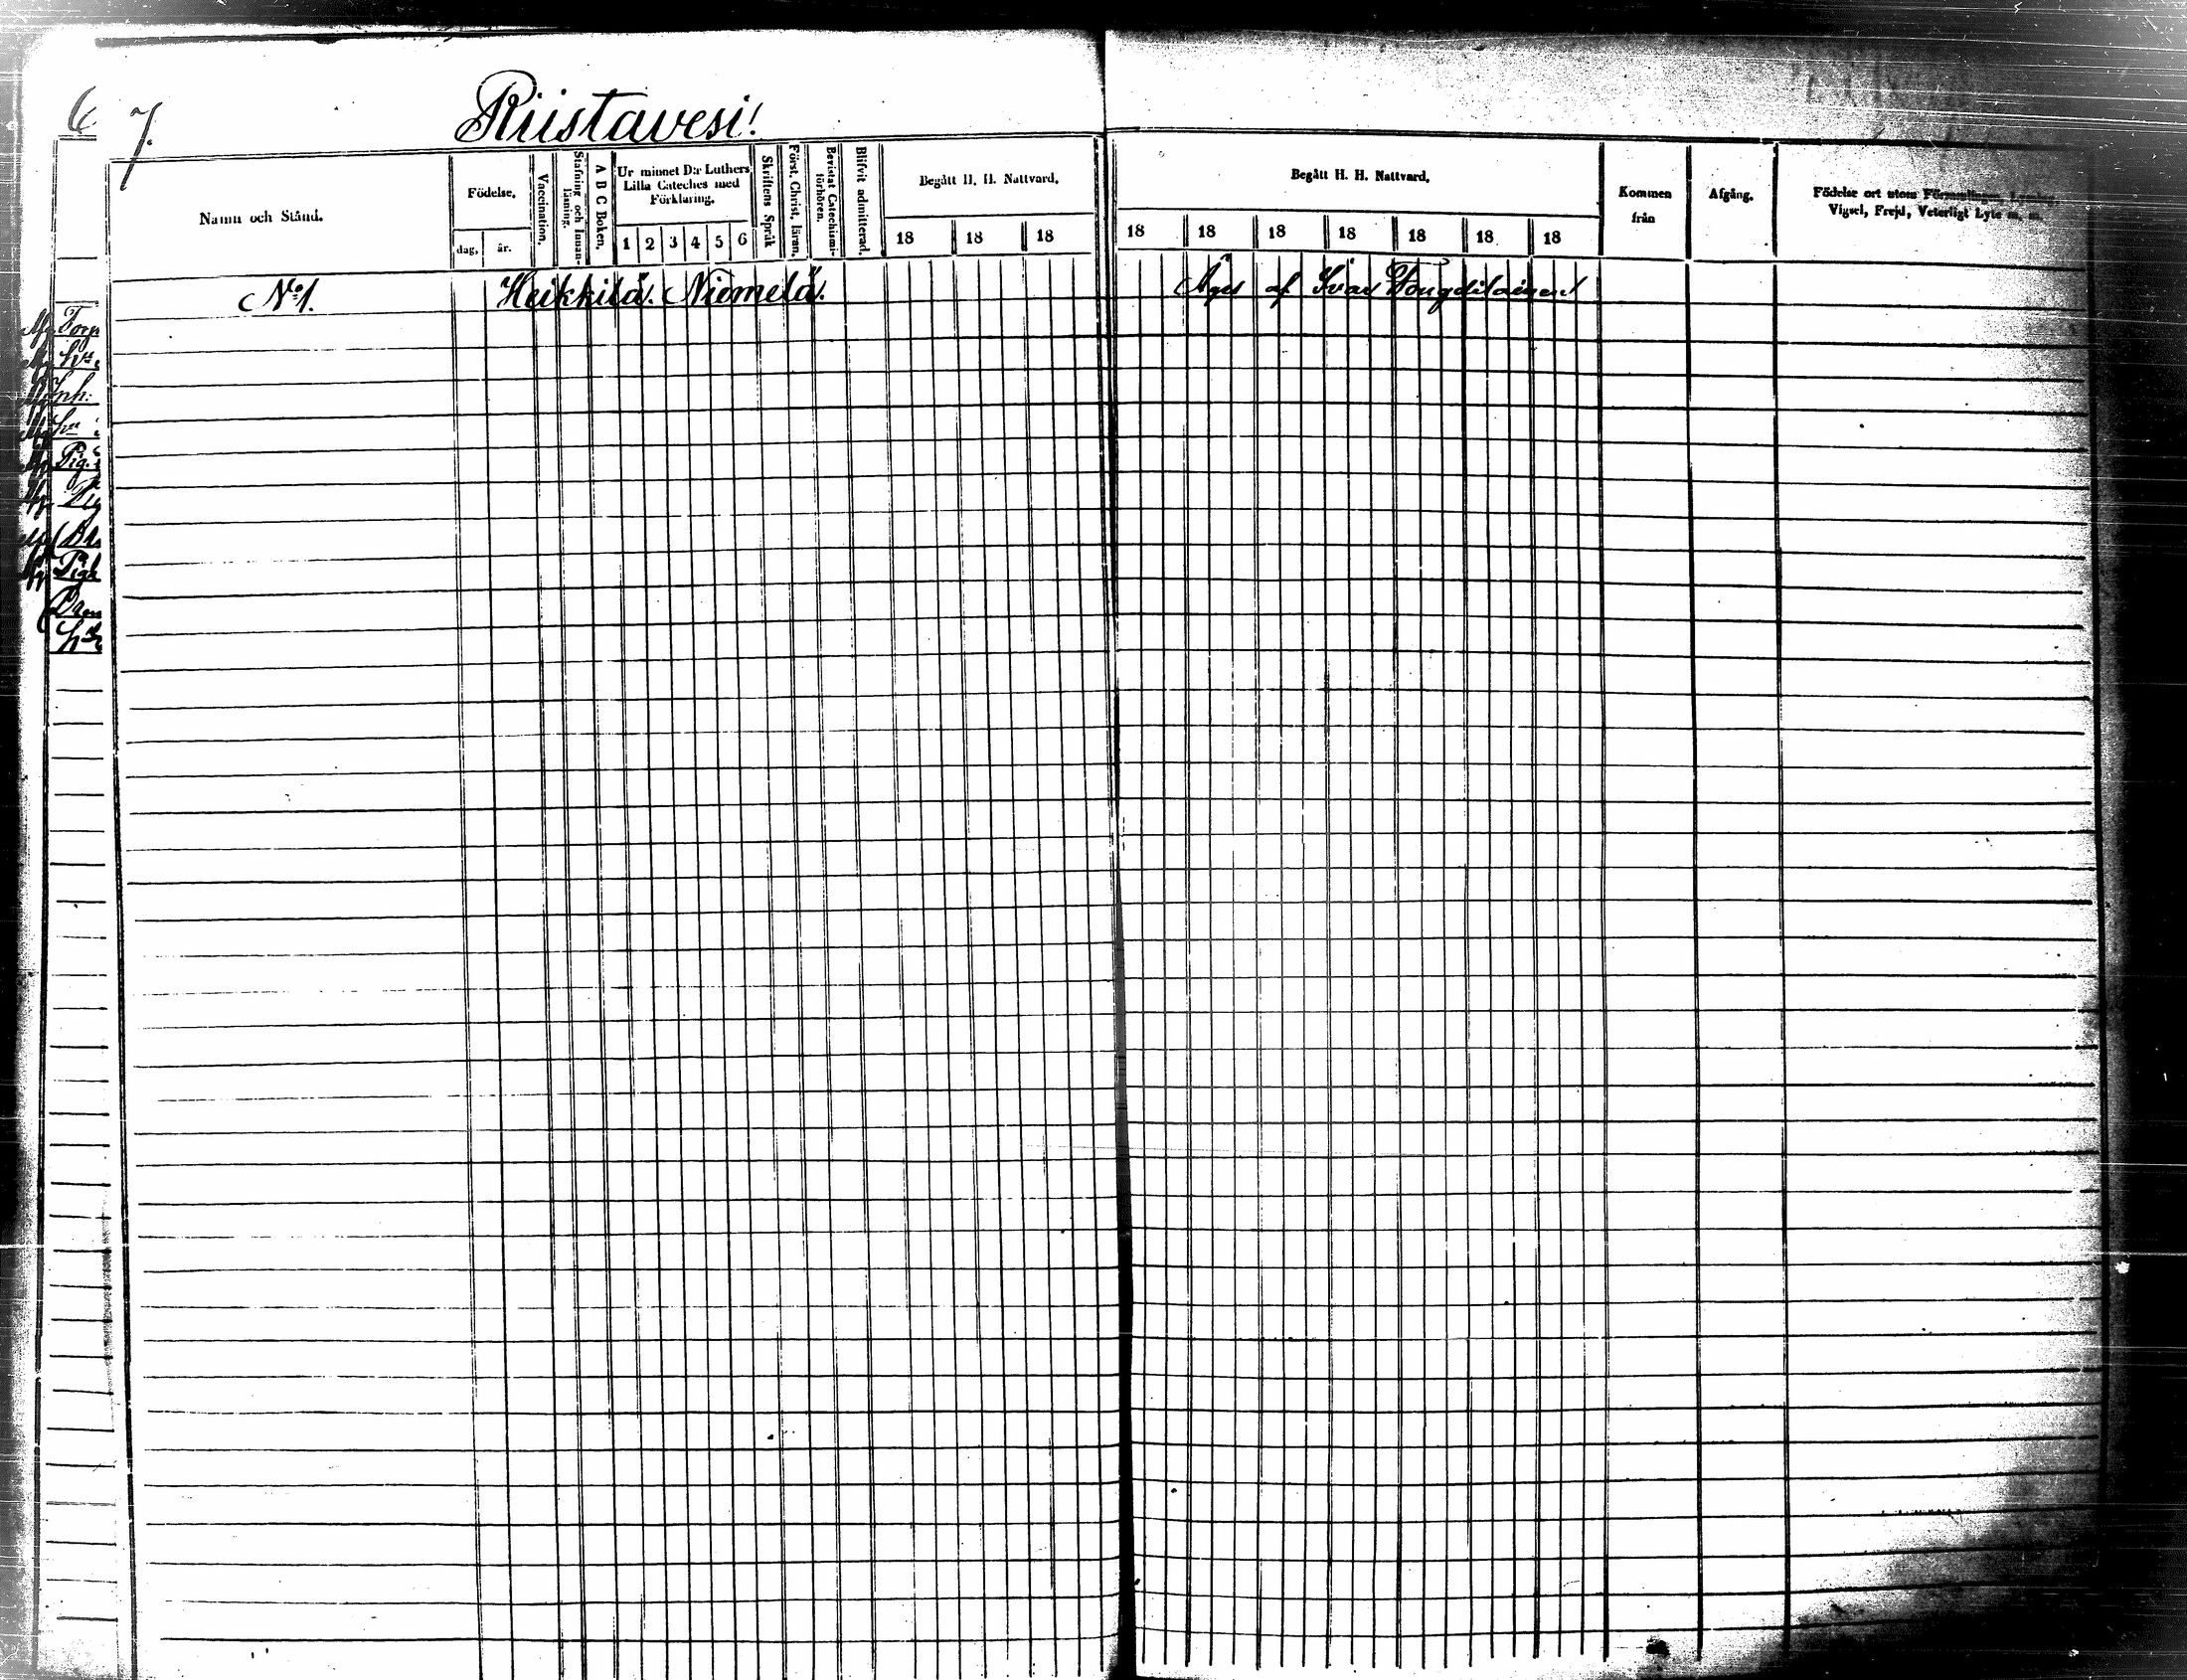 7.
Riistavesi!
Namn och Stånd.
Födelse.
dag, år.
Vaccination.
Stafning och Innanläsning.
A B C Boken.
Ur minnet D:r Luthers Lilla Cateches med Förklaring.
1 2 3 4 5 6
Skriftens Språk
Först. Christ. läran.
Bevistat Catechismiförhören.
Blifvit admitterad.
Begått H. H. Nattvard.
18 18 18
Begått H. H. Nattvard.
18 18 18 18 18 18 18
Kommen från
Afgång.
Födelse ort utom Församlingen,
Vigsel, Frejd, Veterligt Lyte m. m.
No 1. Heikkilä. Niemelä. Äges af Ivar
Torp
Inh:
Pig.